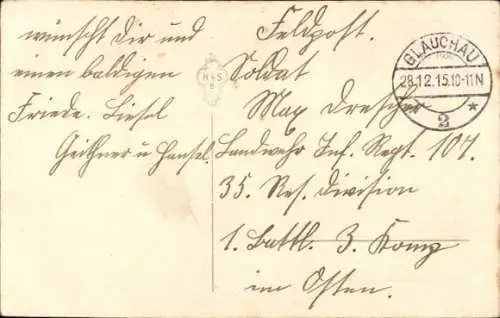 wünscht Dir und
einen baldigen
Friede. Liesel
Geithner u Hansel.
H S
B
Feldpost.
Soldat
Max Drescher
Landwehr Inf. Regt. 107.
35. Res. Division
1. Battl. 3. Komp
im Osten.
GLAUCHAU
28.12.15.10-11N
* 2 *